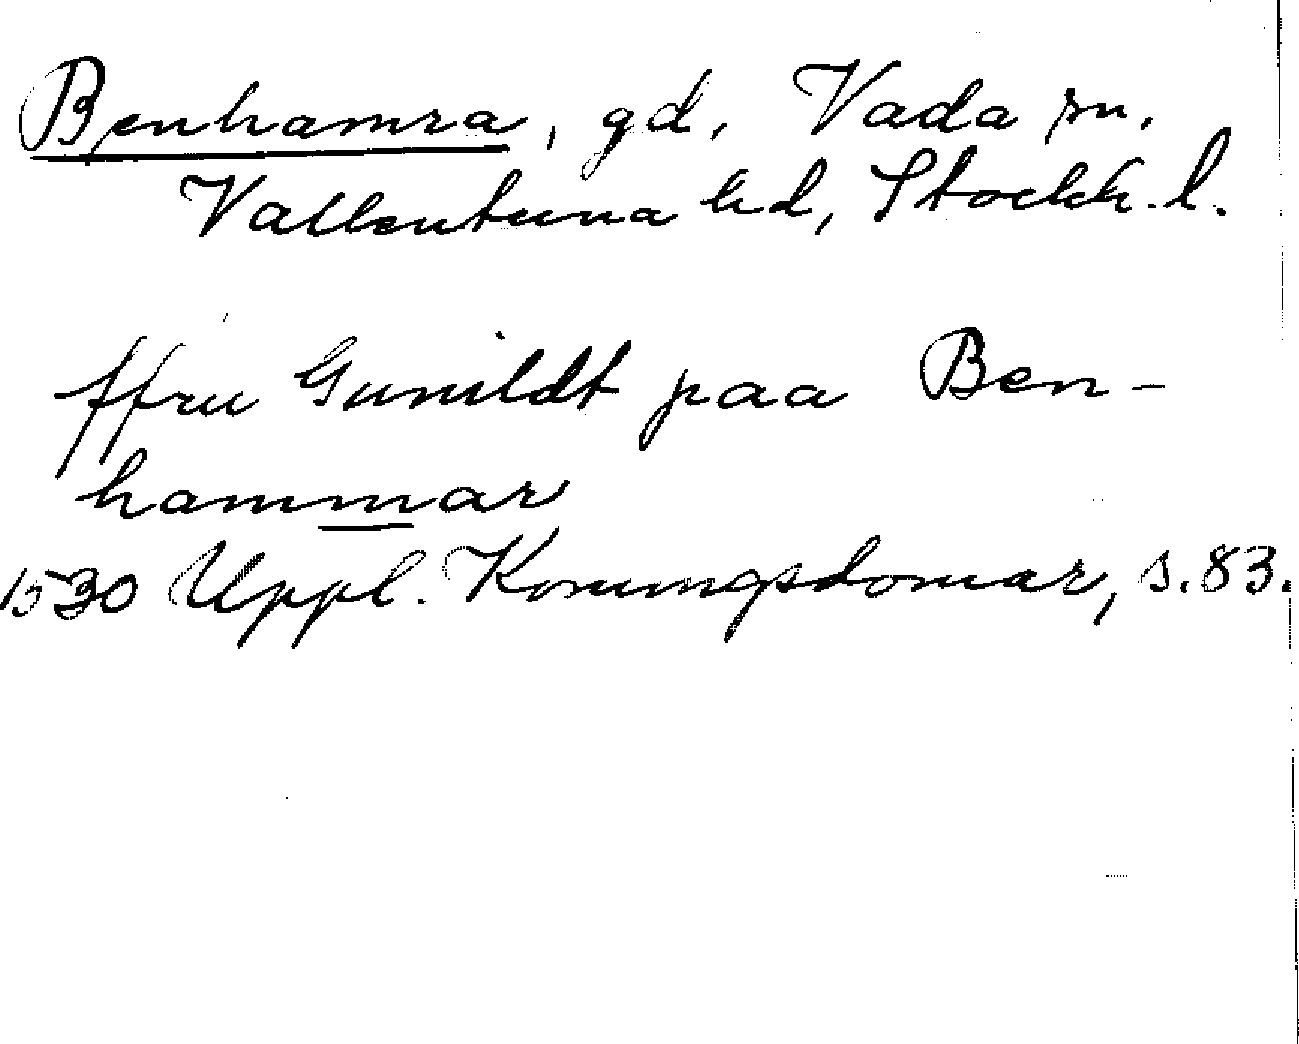 Benhamra, gd, Vada sn.
Vallentuna hd, Stockh. l.
ffru Gunildt paa Ben-
hammar
1530 Uppl. Konungsdomar, s. 83.